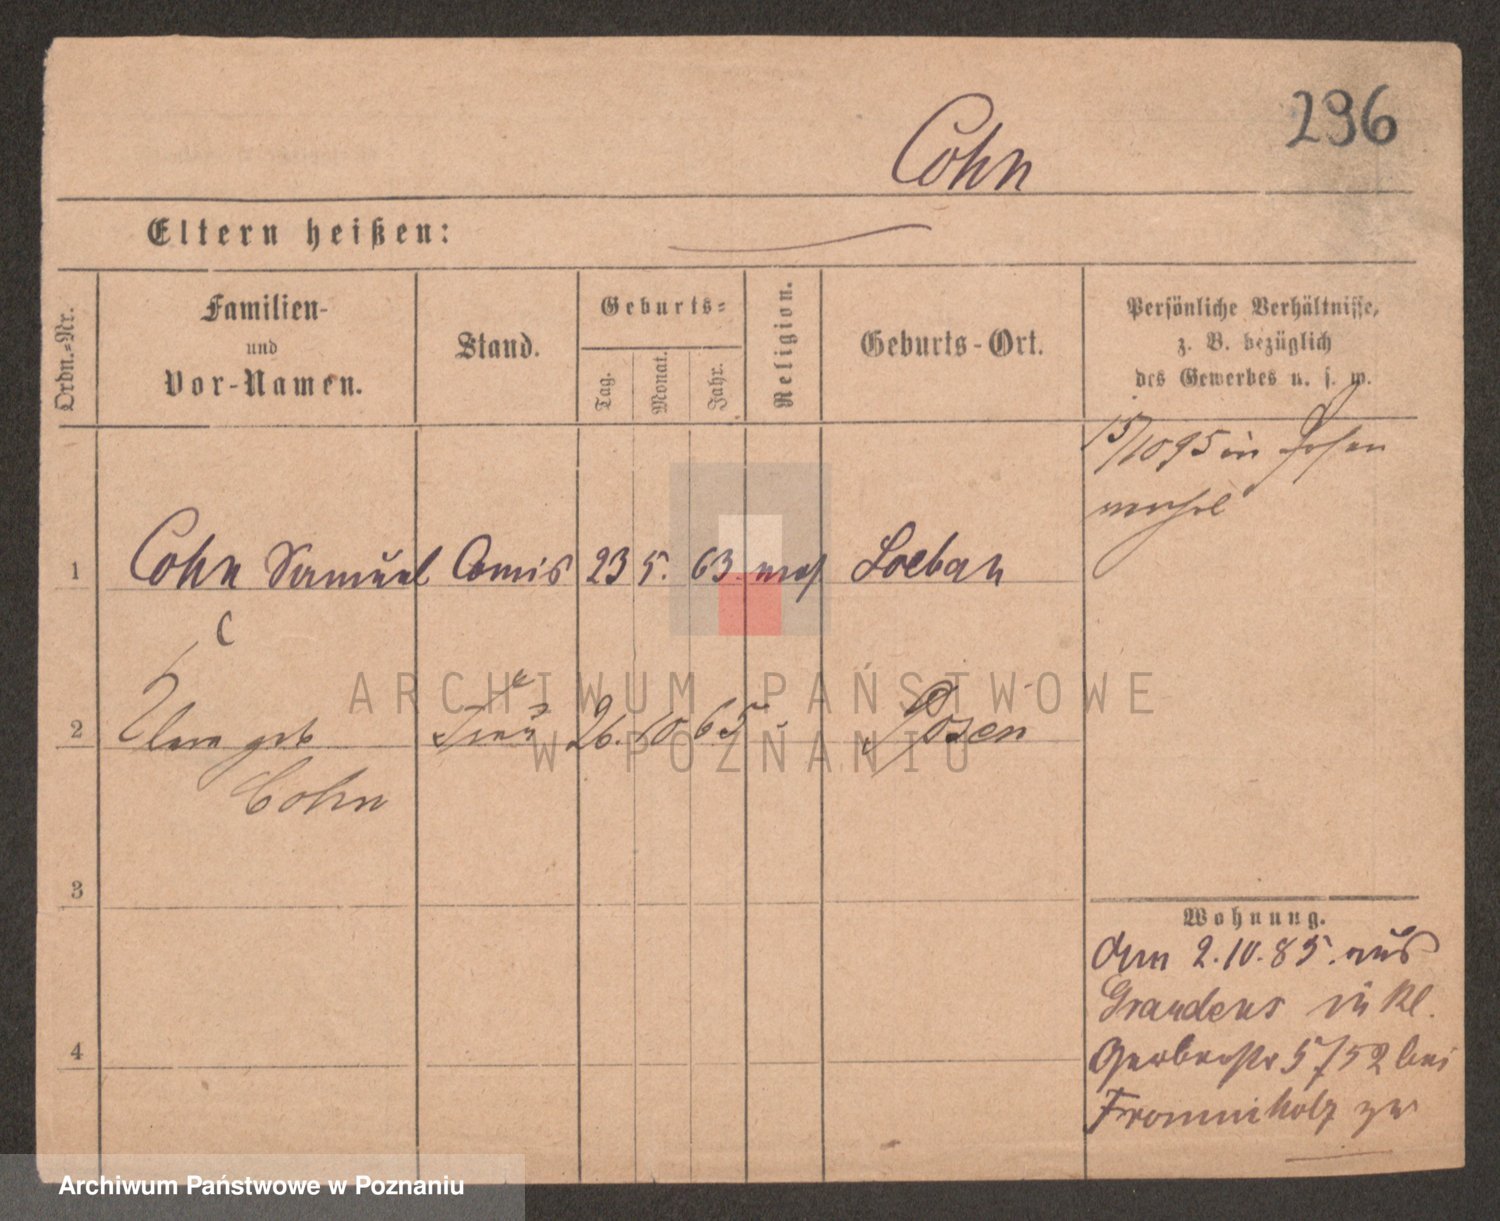 296
Cohn
Eltern heißen:
Ordn.-Nr.
Familien-
und
Vor-Namen.
Stand.
Geburts-
Tag.
Monat.
Jahr.
Religion.
Geburts-Ort.
Persönliche Verhältnisse,
z. B. bezüglich
des Gewerbes u. s. w.
15/10 95 in Posen
1 Cohn Samuel Comis 23 5. 63 mos Loebau
2 geb Frau 26. 10 65 " Posen
Cohn
3
4
Wohnung.
Am 2.10.85. aus
Graudenz in Kl.
Gerberstr 5/52 bei
Frommholz zu
ARCHIWUM PAŃSTWOWE
W POZNANIU
Archiwum Państwowe w Poznaniu